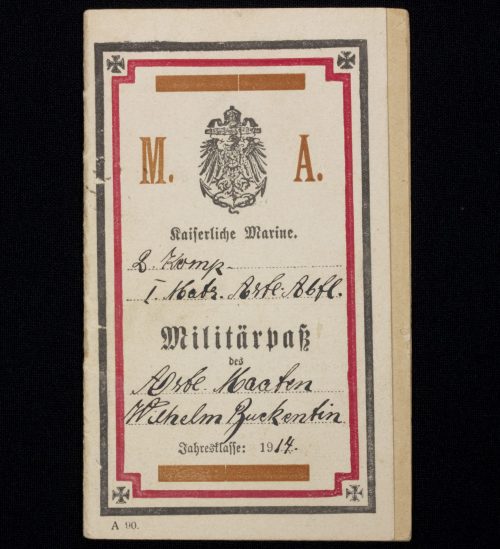 M. A.
Kaiserliche Marine.
2 Komp.
I. Matr. Artl. Abtl.
Militärpaß
des
Wilhelm
Jahresklasse: 1914.
A 90.